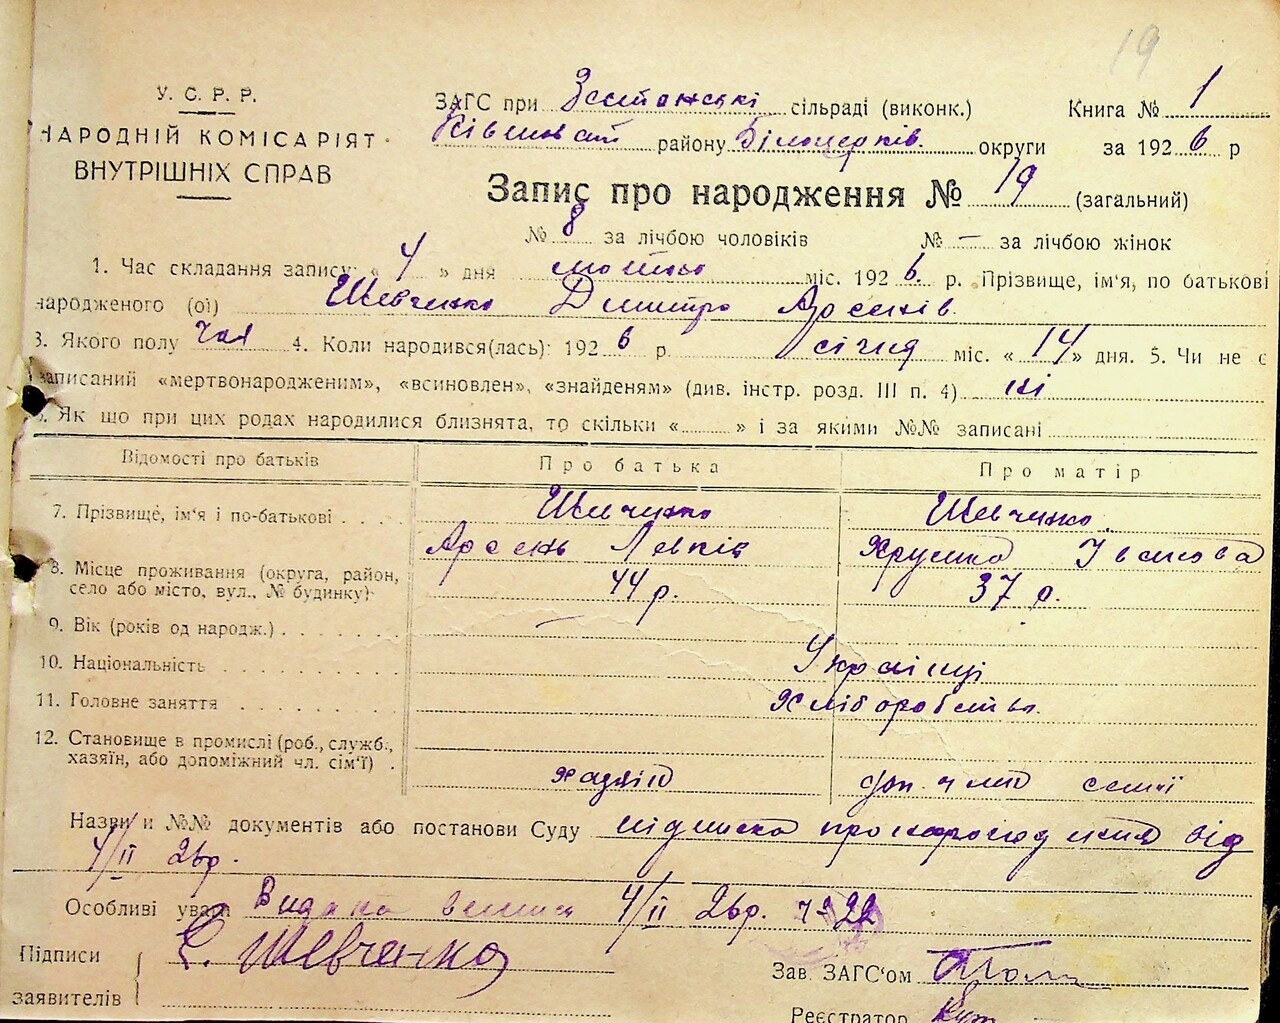 19
У. С. Р. Р.
НАРОДНІЙ КОМІСАРІЯТ
ВНУТРІШНІХ СПРАВ
ЗАГС при сільраді (виконк.) Книга № 1
району Білоцерків. округи за 1926 р
Запис про народження № 19 (загальний)
№ 8 за лічбою чоловіків № — за лічбою жінок
1. Час складання запису: « 4 » дня лютого міс. 1926 р. Прізвище, ім'я, по батькові
народженого (ої) Шевченко Дмитро Арсенів.
3. Якого полу чол 4. Коли народився(лась): 1926 р. січня міс. « 14 » дня. 5. Чи не є
записаний «мертвонародженим», «всиновлен», «знайденям» (див. інстр. розд. III п. 4) ні
6. Як що при цих родах народилися близнята, то скільки « » і за якими №№ записані
Відомості про батьків Про батька Про матір
7. Прізвище, ім'я і по-батькові Шевченко Шевченко
Арсень Левків Ївanова
8. Місце проживання (округа, район,
село або місто, вул., № будинку) 44 р. 37 р.
9. Вік (років од народж.) —
10. Національність Українці
11. Головне заняття Хліборобство.
12. Становище в промислі (роб., служб.,
хазяїн, або допоміжний чл. сім'ї) хазяїн доп. член семії
Назви и №№ документів або постанови Суду підписка про народження від
4/II 26р.
Особливі уваги Видана виписка 4/II 26р. ч-22
Підписи Є. Шевченко
заявителів
Зав. ЗАГС'ом
Реєстратор